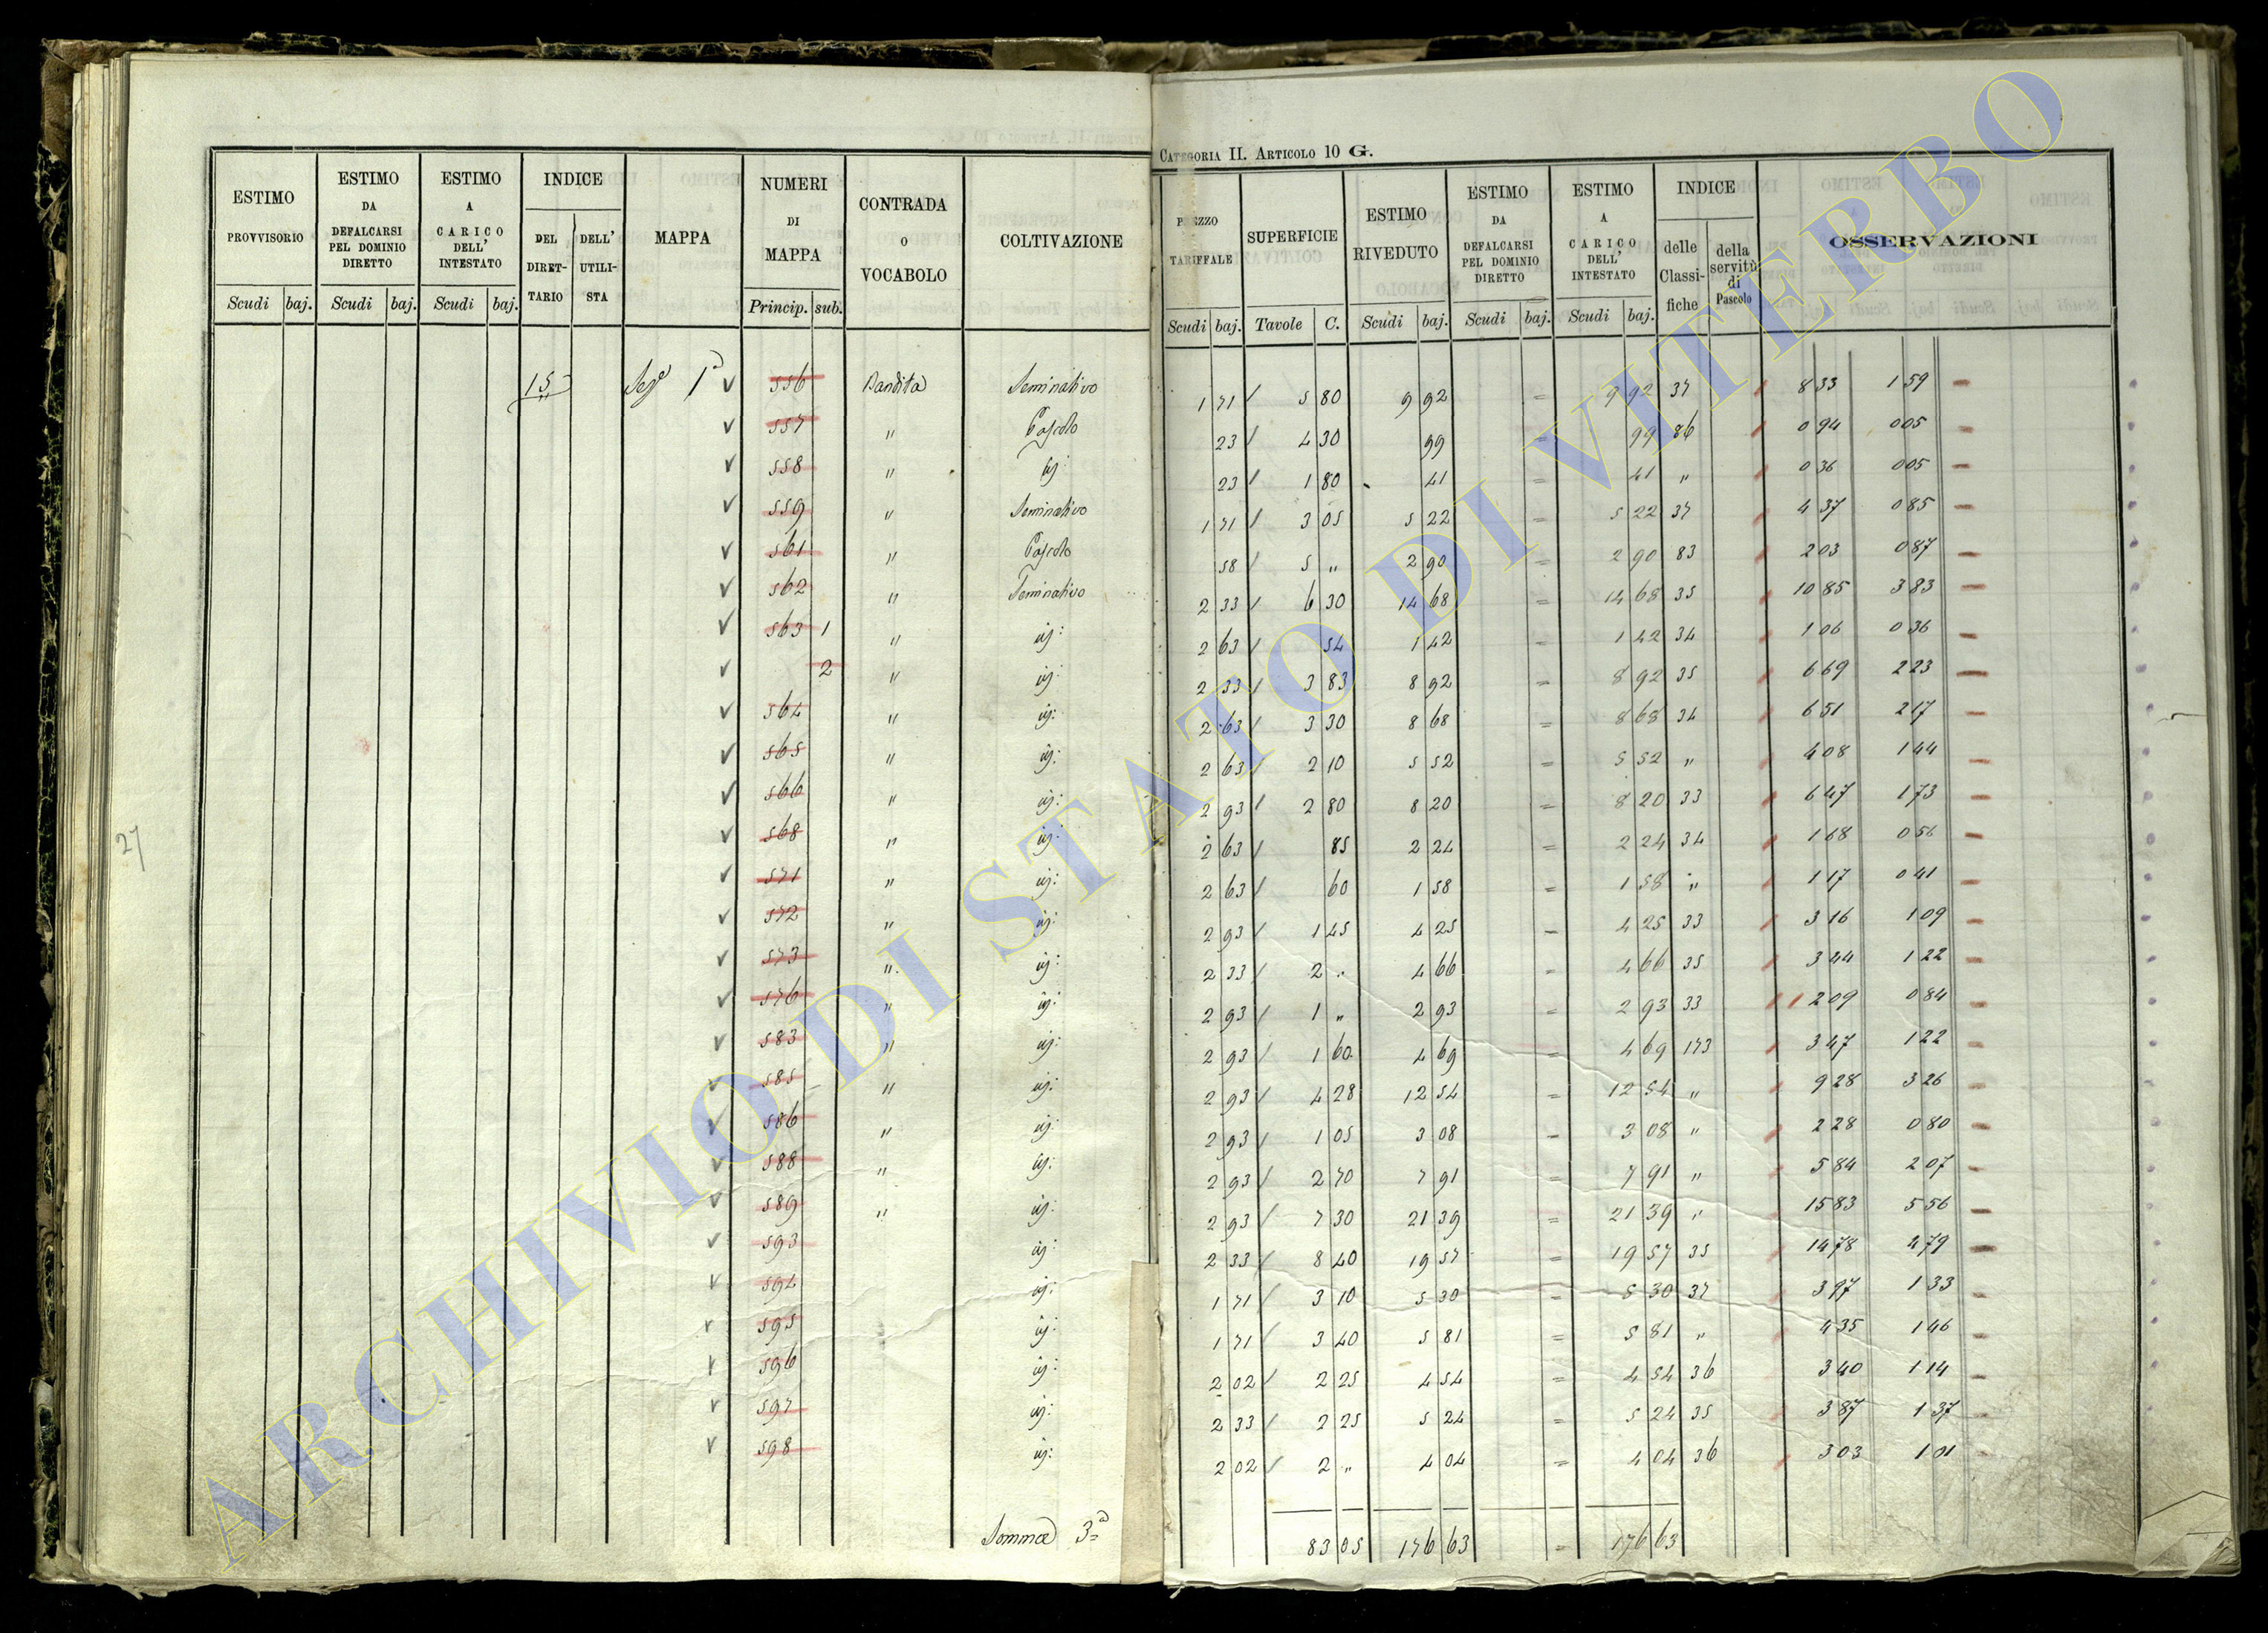 CATEGORIA II. ARTICOLO 10 G.
ESTIMO PROVVISORIO | ESTIMO DA DEFALCARSI PEL DOMINIO DIRETTO | ESTIMO A CARICO DELL' INTESTATO | INDICE | MAPPA | NUMERI DI MAPPA | CONTRADA O VOCABOLO | COLTIVAZIONE | PREZZO TARIFFALE | SUPERFICIE | ESTIMO RIVEDUTO | ESTIMO DA DEFALCARSI PEL DOMINIO DIRETTO | ESTIMO A CARICO DELL' INTESTATO | INDICE | OSSERVAZIONI
DEL DIRETTARIO | DELL' UTILISTA | delle Classifiche | della servitù di Pascolo
Scudi | baj. | Scudi | baj. | Scudi | baj. | Princip. | sub. | Scudi | baj. | Tavole | C. | Scudi | baj. | Scudi | baj. | Scudi | baj.
15 | 1ª | 556 | Bandita | Seminativo | 1 71 | 5 80 | 9 92 | = | 9 92 | 37 | 8 33 | 1 59
557 | " | Pascolo | 23 | 4 30 | 99 | = | 99 | 86 | 0 94 | 005
558 | " | iij: | 23 | 1 80 | 41 | = | 41 | " | 0 36 | 005
559 | " | Seminativo | 1 71 | 3 05 | 5 22 | = | 5 22 | 37 | 4 37 | 085
561 | " | Pascolo | 58 | 5 " | 2 90 | = | 2 90 | 83 | 2 03 | 087
562 | " | Seminativo | 2 33 | 6 30 | 14 68 | = | 14 68 | 35 | 10 85 | 3 83
563 | 1 | " | iij: | 2 63 | 54 | 1 42 | = | 1 42 | 34 | 1 06 | 0 36
2 | " | iij: | 2 33 | 3 83 | 8 92 | = | 8 92 | 35 | 6 69 | 2 23
564 | " | iij: | 2 63 | 3 30 | 8 68 | = | 8 68 | 34 | 6 51 | 2 17
565 | " | iij: | 2 63 | 2 10 | 5 52 | = | 5 52 | " | 4 08 | 1 44
566 | " | iij: | 2 93 | 2 80 | 8 20 | = | 8 20 | 33 | 6 47 | 1 73
568 | " | iij: | 2 63 | 85 | 2 24 | = | 2 24 | 34 | 1 68 | 0 56
571 | " | iij: | 2 63 | 60 | 1 58 | = | 1 58 | " | 1 17 | 0 41
572 | " | iij: | 2 93 | 1 45 | 4 25 | = | 4 25 | 33 | 3 16 | 1 09
573 | " | iij: | 2 33 | 2 " | 4 66 | = | 4 66 | 35 | 3 44 | 1 22
576 | " | iij: | 2 93 | 1 " | 2 93 | = | 2 93 | 33 | 2 09 | 0 84
583 | " | iij: | 2 93 | 1 60 | 4 69 | = | 4 69 | 173 | 3 47 | 1 22
585 | " | iij: | 2 93 | 4 28 | 12 54 | = | 12 54 | " | 9 28 | 3 26
586 | " | iij: | 2 93 | 1 05 | 3 08 | = | 3 08 | " | 2 28 | 0 80
588 | " | iij: | 2 93 | 2 70 | 7 91 | = | 7 91 | " | 5 84 | 2 07
589 | " | iij: | 2 93 | 7 30 | 21 39 | = | 21 39 | " | 15 83 | 5 56
593 | iij: | 2 33 | 8 40 | 19 57 | = | 19 57 | 35 | 14 78 | 4 79
594 | iij: | 1 71 | 3 10 | 5 30 | = | 5 30 | 37 | 3 97 | 1 33
595 | iij: | 1 71 | 3 40 | 5 81 | = | 5 81 | " | 4 35 | 1 46
596 | iij: | 2 02 | 2 25 | 4 54 | = | 4 54 | 36 | 3 40 | 1 14
597 | iij: | 2 33 | 2 25 | 5 24 | = | 5 24 | 35 | 3 87 | 1 37
598 | iij: | 2 02 | 2 " | 4 04 | = | 4 04 | 36 | 3 03 | 1 01
Somma 3ª | 83 05 | 176 63 | = | 176 63
27
ARCHIVIO DI STATO DI VITERBO